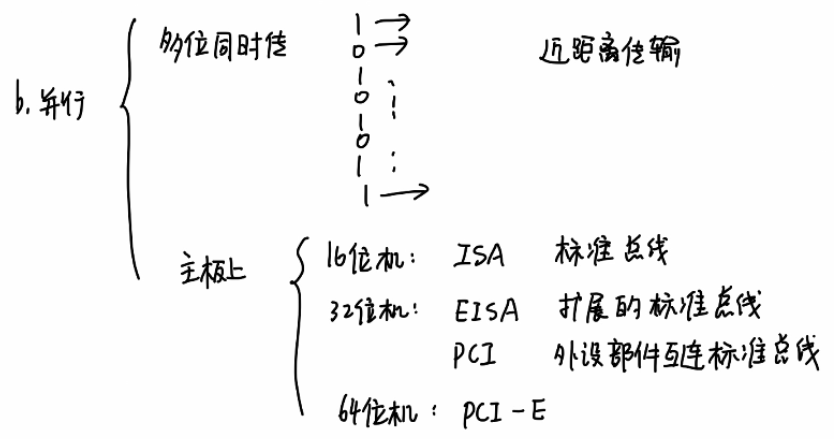 b. 并行
多位同时传
1 →
0 →
1
0
1
0
1
1 →
近距离传输
主板上
16位机: ISA 标准总线
32位机: EISA 扩展的标准总线
PCI 外设部件互连标准总线
64位机: PCI-E